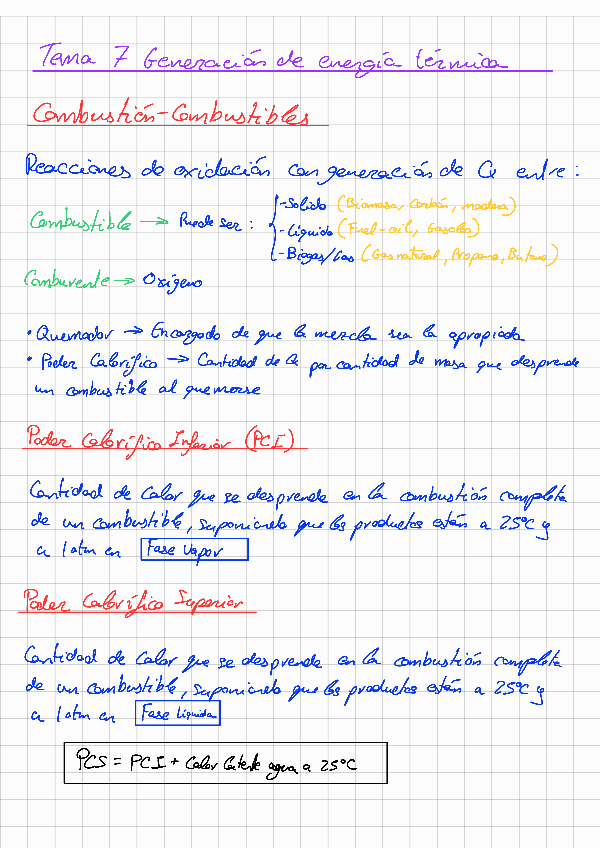 Tema 7 Generación de energía térmica
Combustión-Combustibles
Reacciones de oxidación con generación de Q entre:
Combustible → Puede ser:
-Solido (Biomasa, Carbón, madera)
-Líquido (Fuel-oil, Gasoleo)
-Biogas/Gas (Gas natural, Propano, Butano)
Comburente → Oxígeno
• Quemador → Encargado de que la mezcla sea la apropiada
• Poder Calorífico → Cantidad de Q por cantidad de masa que desprende
un combustible al quemarse
Poder Calorífico Inferior (PCI)
Cantidad de Calor que se desprende en la combustión completa
de un combustible, suponiendo que los productos están a 25ºC y
a 1 atm en Fase Vapor
Poder Calorífico Superior
Cantidad de Calor que se desprende en la combustión completa
de un combustible, suponiendo que los productos están a 25ºC y
a 1 atm en Fase Líquida
PCS = PCI + Calor latente agua a 25ºC